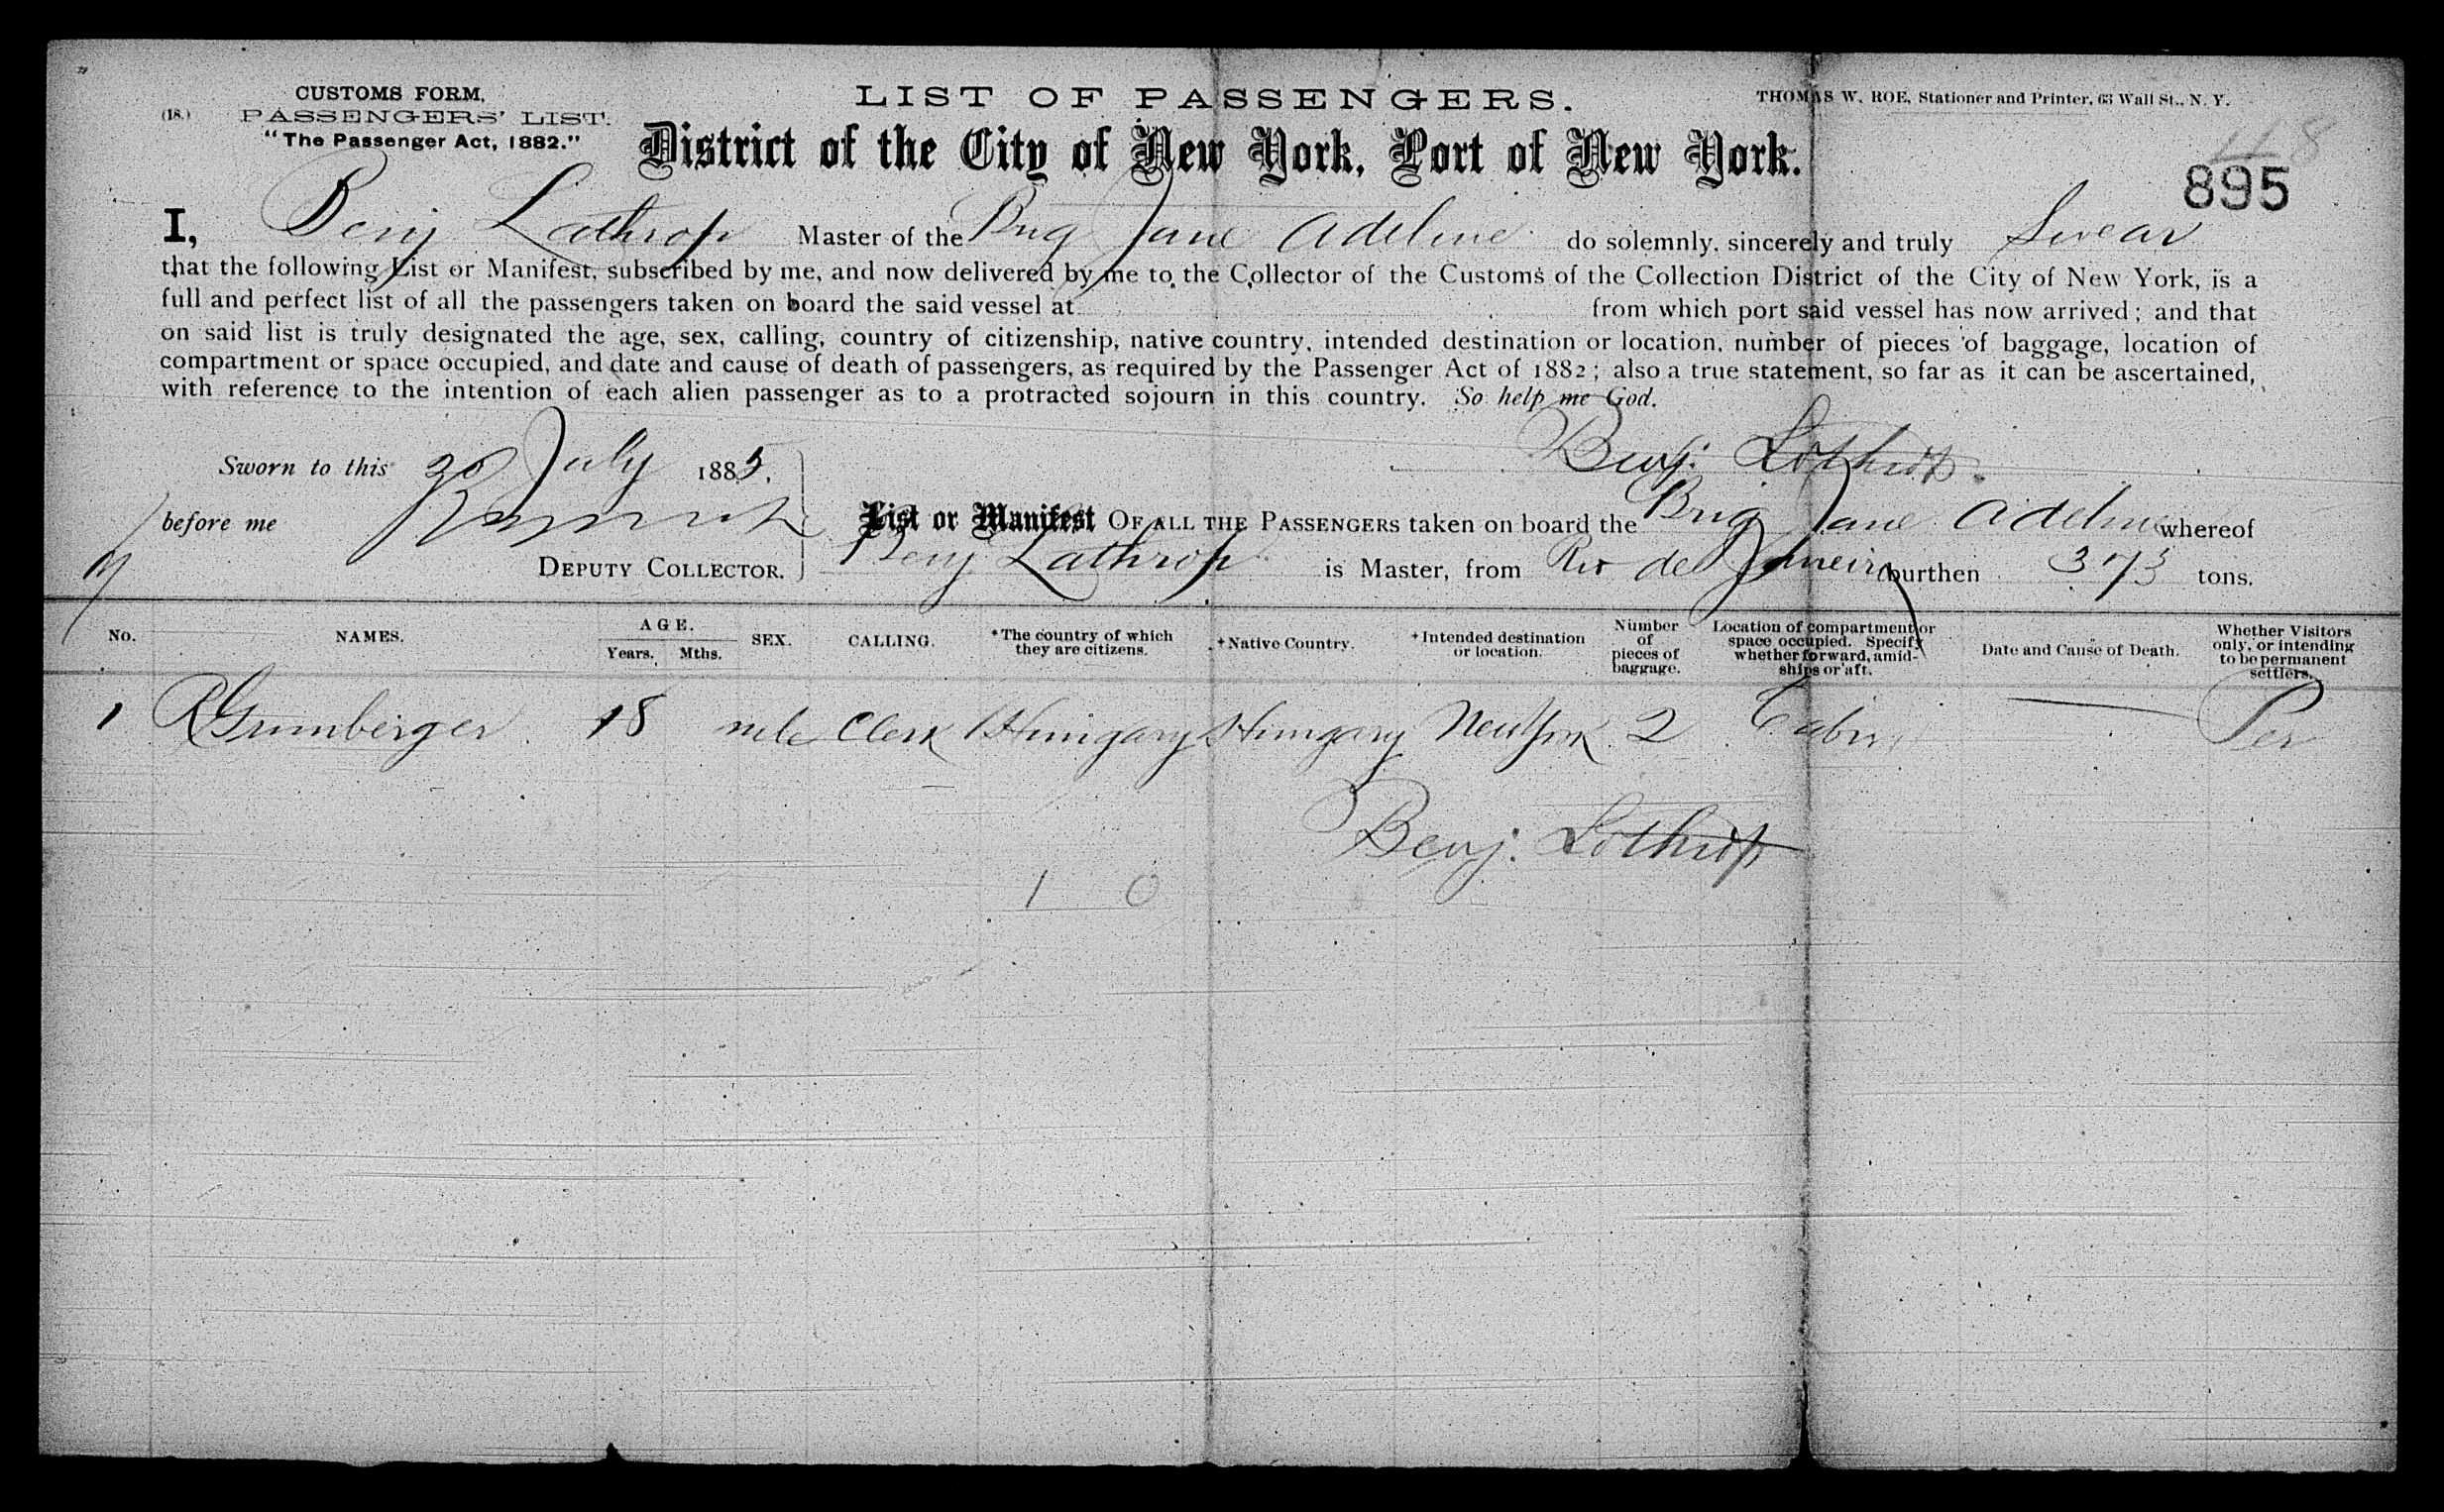 CUSTOMS FORM.
(18.) PASSENGERS' LIST.
"The Passenger Act, 1882."
LIST OF PASSENGERS.
THOMAS W. ROE, Stationer and Printer, 63 Wall St., N. Y.
District of the City of New York, Port of New York.
895
I, Benj Lathrop Master of the Brig Jane Adeline do solemnly, sincerely and truly Swear
that the following List or Manifest, subscribed by me, and now delivered by me to the Collector of the Customs of the Collection District of the City of New York, is a
full and perfect list of all the passengers taken on board the said vessel at from which port said vessel has now arrived; and that
on said list is truly designated the age, sex, calling, country of citizenship, native country, intended destination or location, number of pieces of baggage, location of
compartment or space occupied, and date and cause of death of passengers, as required by the Passenger Act of 1882; also a true statement, so far as it can be ascertained,
with reference to the intention of each alien passenger as to a protracted sojourn in this country. So help me God.
Benj. Lothrop.
Sworn to this July 1885.
before me
DEPUTY COLLECTOR.
List or Manifest OF ALL THE PASSENGERS taken on board the Brig Jane Adeline whereof
Benj Lathrop is Master, from Rio de Janeiro burthen 373 tons.
No. NAMES. AGE. Years. Mths. SEX. CALLING. *The country of which they are citizens. +Native Country. +Intended destination or location. Number of pieces of baggage. Location of compartment or space occupied. Specify whether forward, amidships or aft. Date and Cause of Death. Whether Visitors only, or intending to be permanent settlers.
1 R Grunberger 18 male Clerk Hungary Hungary New York 2 Cabin — Per
Benj. Lothrop
1 0